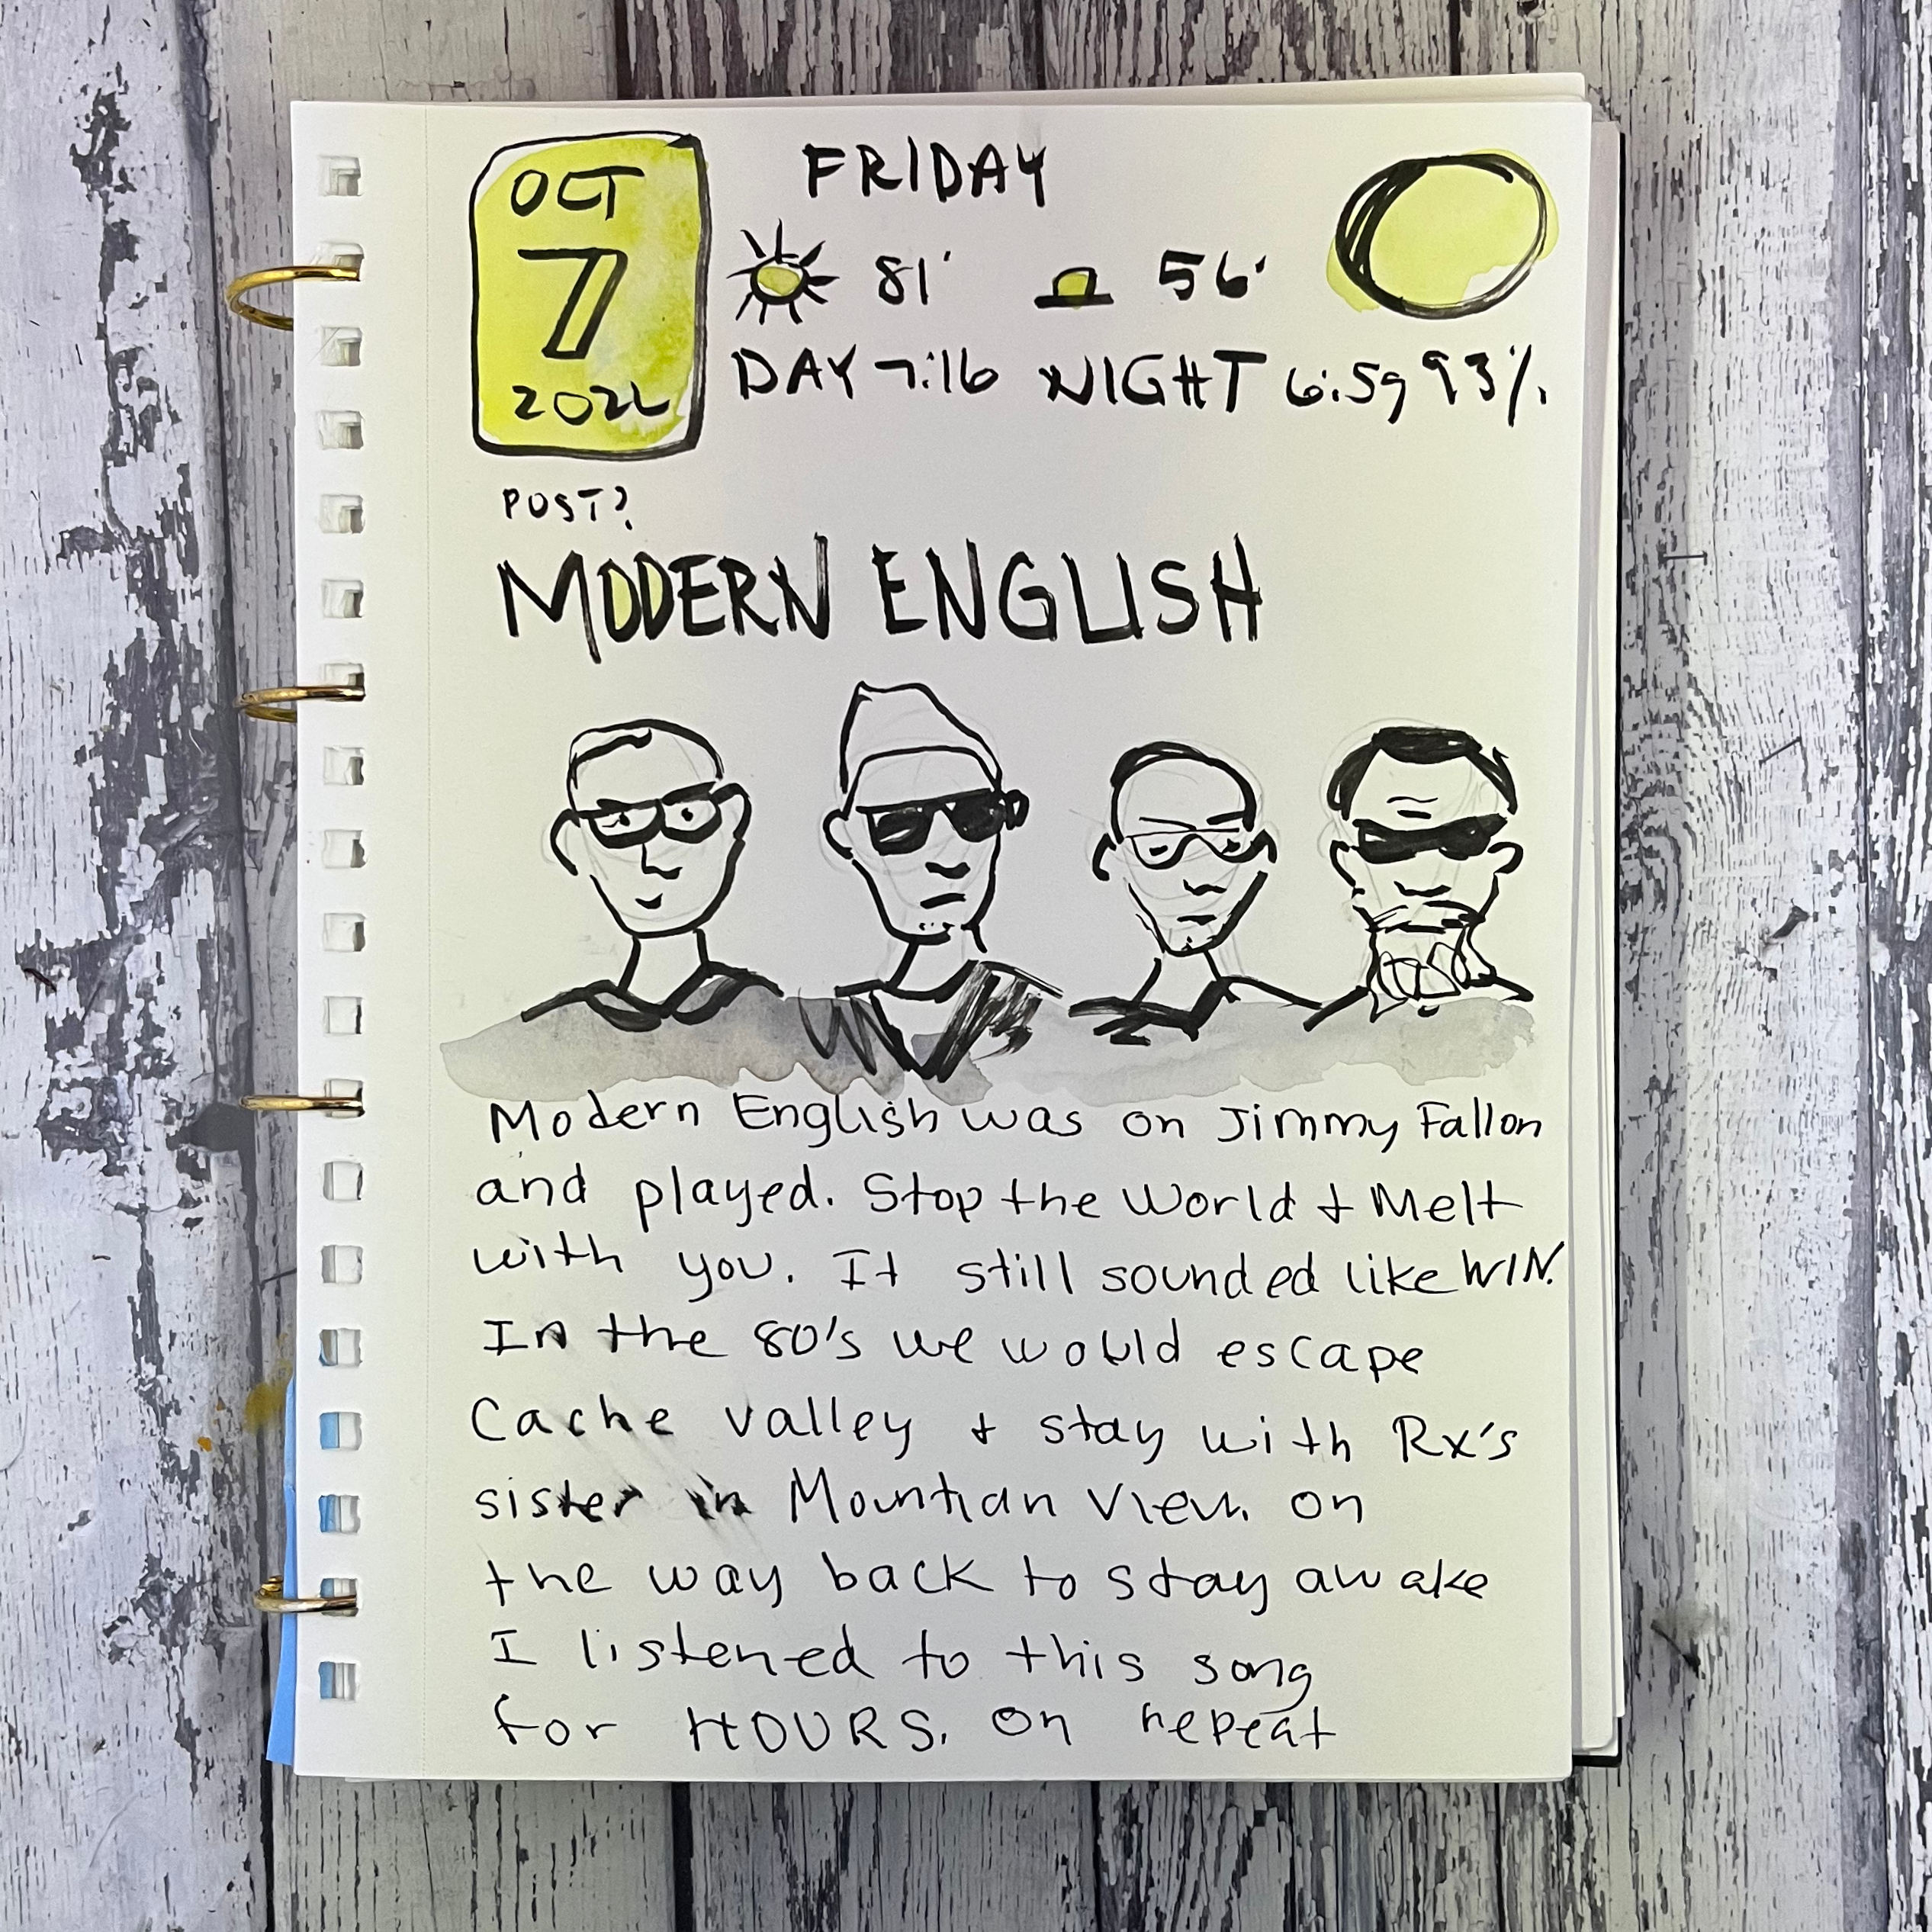 OCT
7
2022
FRIDAY
81° 56°
DAY 7:16 NIGHT 6:59 93%
POST?
MODERN ENGLISH
Modern English was on Jimmy Fallon
and played. Stop the World + Melt
with you. It still sounded like WIN.
In the 80's we would escape
Cache valley + stay with Rx's
sister in Mountian View. on
the way back to stay awake
I listened to this song
for HOURS. On repeat